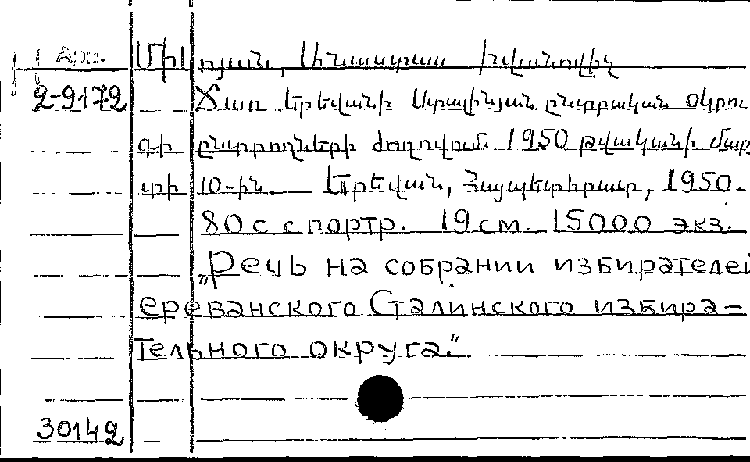 Միկոյան, Անաստաս Իվանովիչ
2-9172 Ճառ Երեվանի Ստալինյան ընտրական օկրու
գի ընտրողների ժողովում 1950 թվականի մար
տի 10-ին. Երեվան, Հայպետհրատ, 1950.
80 с с портр. 19 см. 15000 экз.
„Речь на собрании избирателей
ереванского Сталинского избира–
тельного округа."
30142